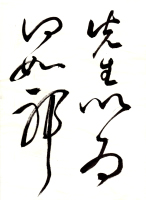 先生以為
何如耶